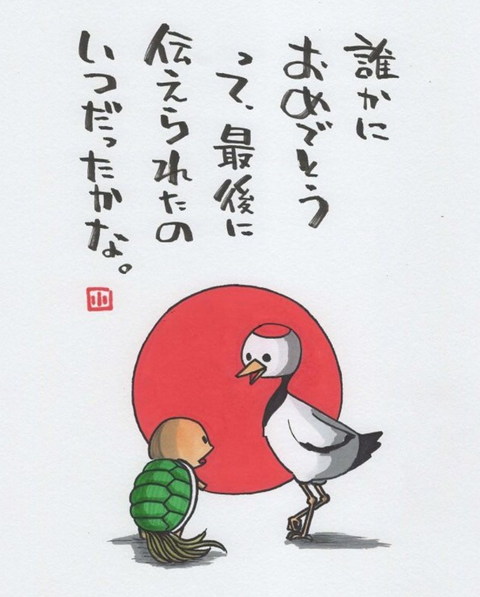 誰かに
おめでとう
って、最後に
伝えられたの
いつだったかな。
小